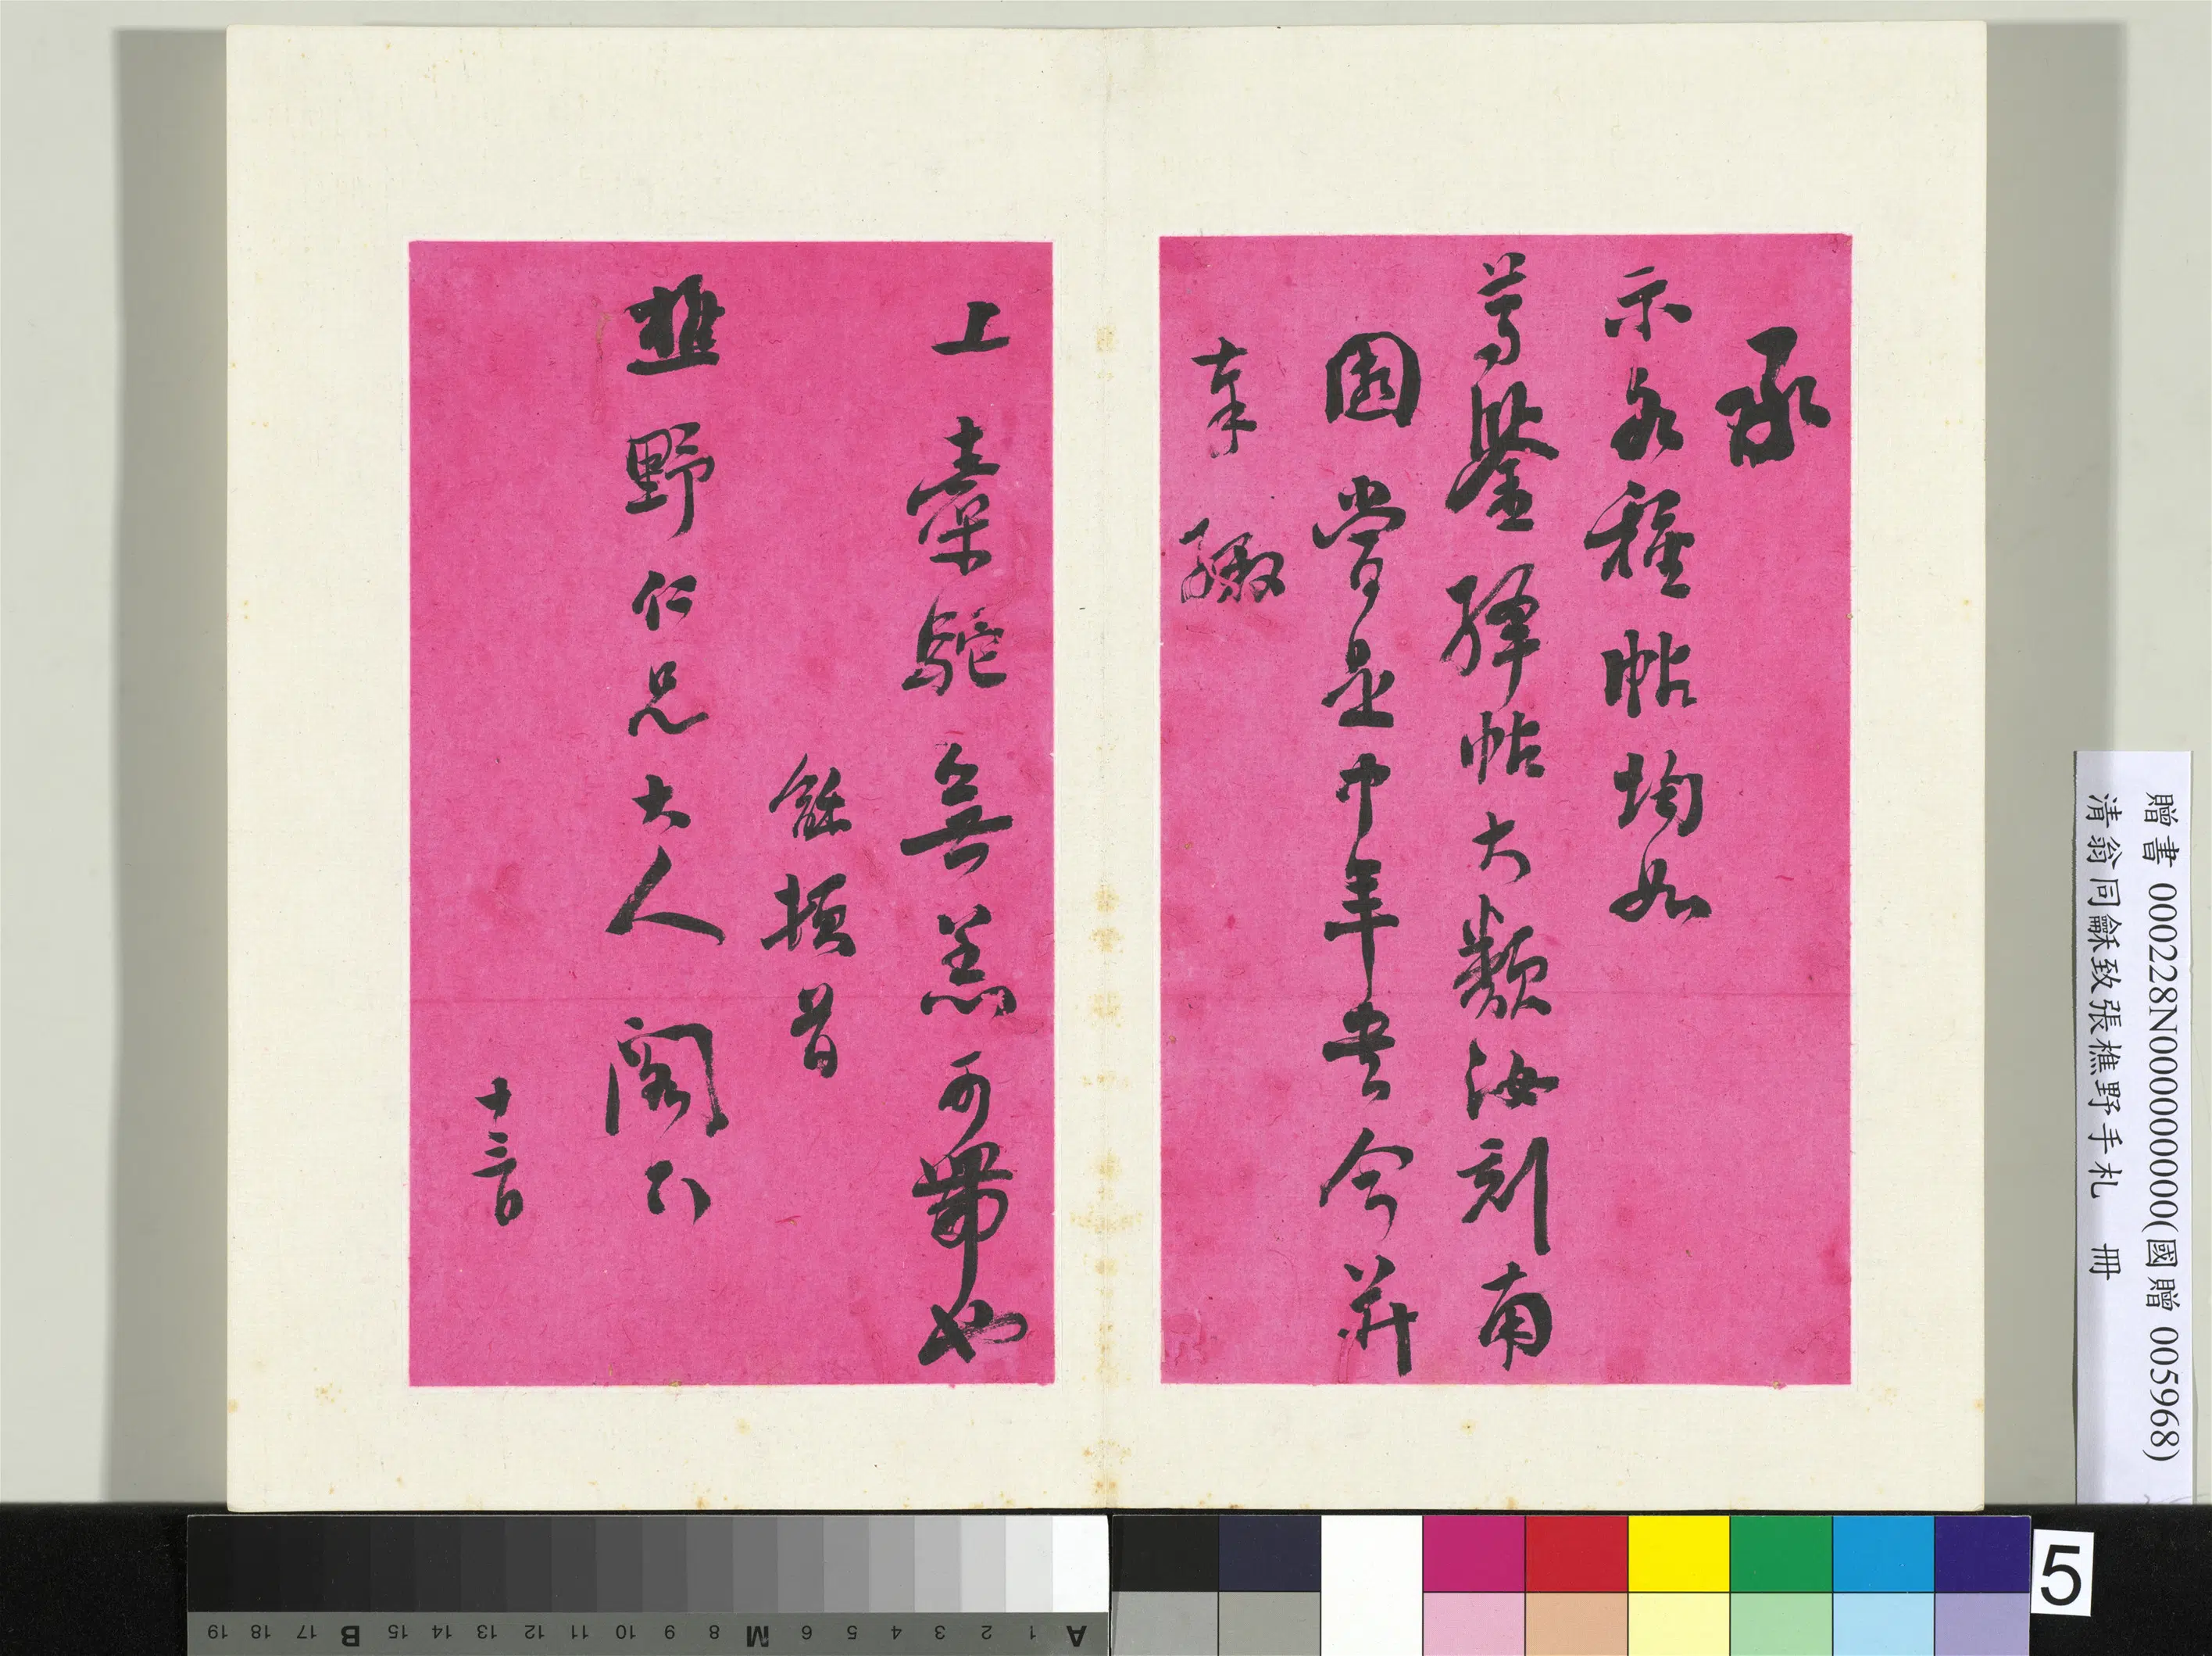 承
示各種帖均如
尊鑒絳帖大類汝刻南
園嘗是中年書今并
奉繳
上橐駝無恙可帶也
龢頓首
樵野仁兄大人閣下
十三日
贈書 000228N000000000(國贈 005968)
清翁同龢致張樵野手札 冊
A 1 2 3 4 5 6 M 8 9 10 11 12 13 14 15 B 17 18 19
5